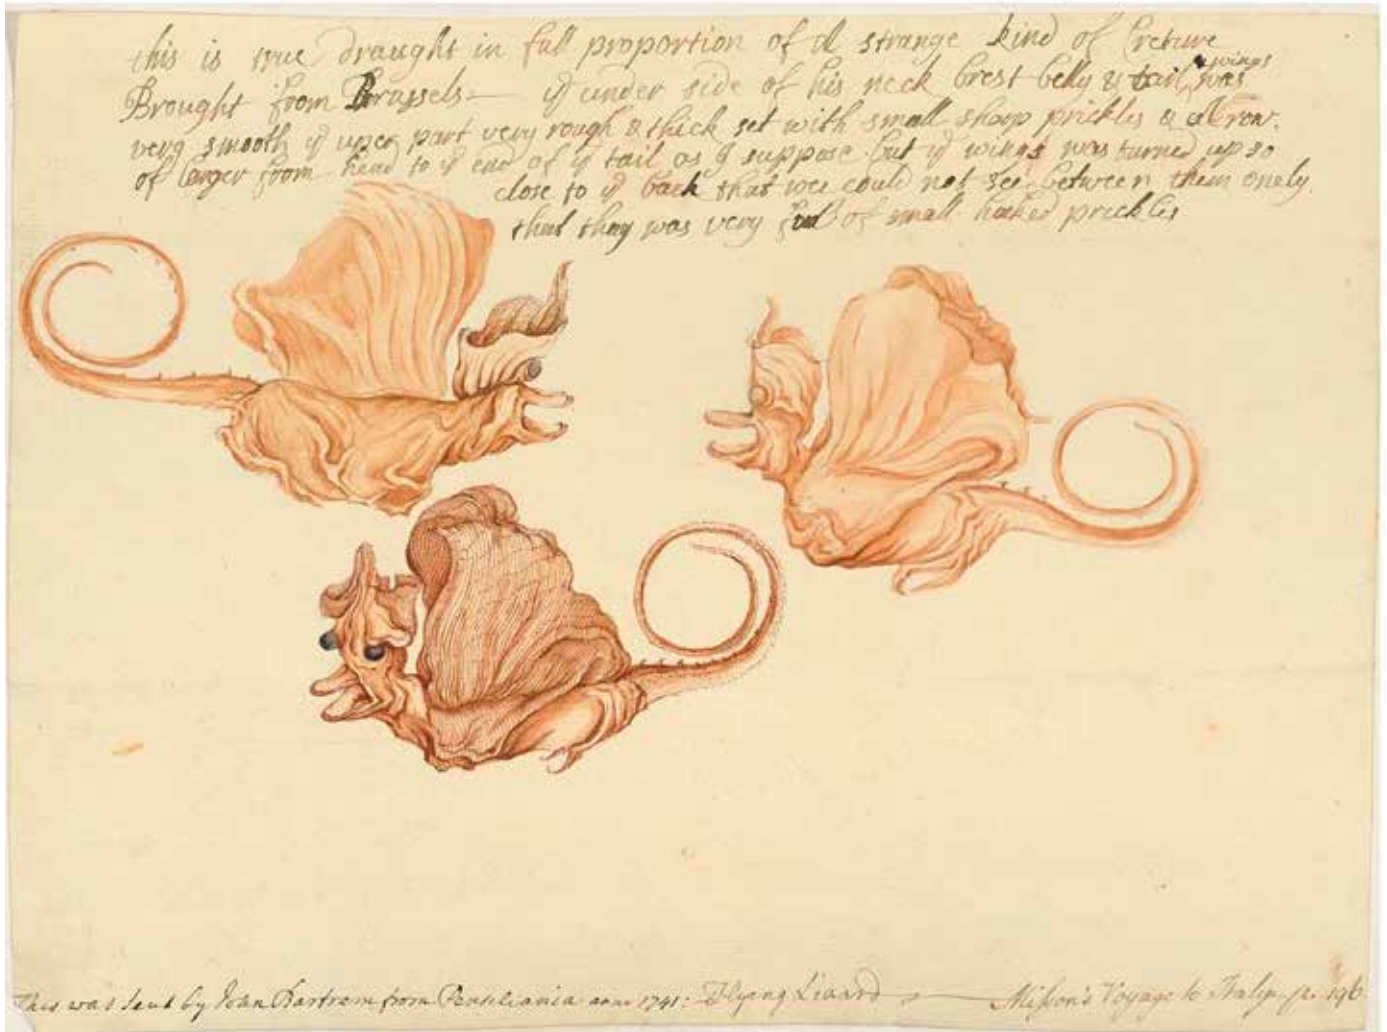 this is true draught in full proportion of a strange kind of Creture
wings
Brought from Brussels — ye under side of his neck brest belly & tail was
very smooth ye uper part very rough & thick set with small sharp prickles & a row
of larger from head to ye end of ye tail as I suppose but ye wings was turned up so
close to ye back that wee could not see between them onely
that thay was very full of small hooked prickles
This was sent by John Bartram from Pensilvania anno 1741: Flying Lizard — Misson's Voyage to Italy p. 196